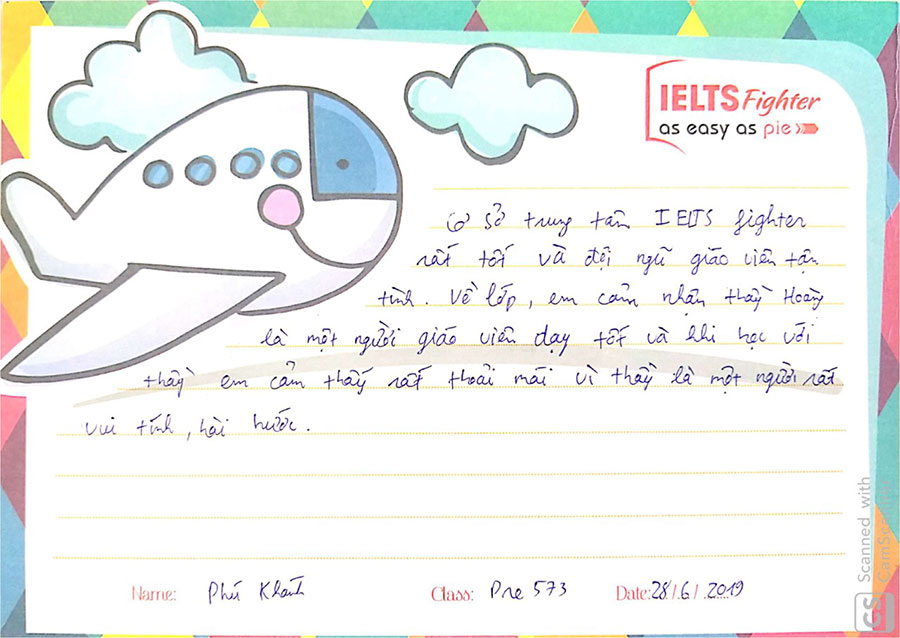 IELTS Fighter
as easy as pie
Cơ sở trung tâm IELTS fighter
rất tốt và đội ngũ giáo viên tận
tình. Về lớp, em cảm nhận thầy Hoàng
là một người giáo viên dạy tốt và khi học với
thầy em cảm thấy rất thoải mái vì thầy là một người rất
vui tính, hài hước.
Name: Phú Khánh Class: Pre 573 Date: 28/6/2019
CS Scanned with
CamScanner